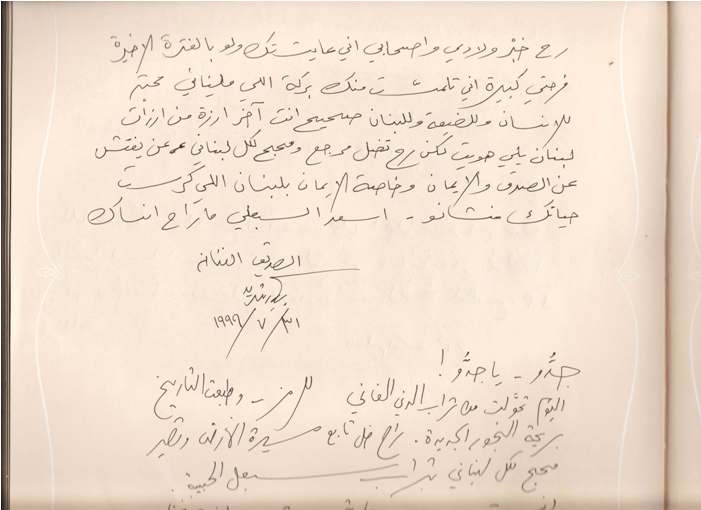 رح خبّر ولادي واصحابي اني عايشتك ولو بالفترة الاخيرة
فرحتي كبيرة اني تلمست منك بركة اللي مليتاني محبّة
للإنسان وللضيعة وللبنان صحيح انت آخر ارزة من ارزات
لبنان يلي هويت لكن رح تضل مرجع ومحجج لكل لبناني عم يفتش
عن الصدق والإيمان وخاصة الإيمان بلبنان اللي كرست
حياتك منشانو - اسعد السبعلي ما راح انساك
الصديق الفنان
٣١ / ٧ / ١٩٩٩
جدّو - يا جدّو !
اليوم تحوّلت من تراب الدني الفاني للرمز - وطبعت التاريخ
بريحة البخور الجديدة . راح ضل تابع مسيرة الأرض وتصير
محجج لكل لبناني بتراب سبعل الحبيبة .